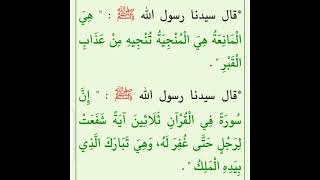 *قال سيدنا رسول الله ﷺ : " هِيَ
الْمَانِعَةُ هِيَ الْمُنْجِيَةُ تُنْجِيهِ مِنْ عَذَابِ
الْقَبْرِ " .
*قال سيدنا رسول الله ﷺ : " إِنَّ
سُورَةً فِي الْقُرْآنِ ثَلَاثِينَ آيَةً شَفَعَتْ
لِرَجُلٍ حَتَّى غُفِرَ لَهُ، وَهِيَ تَبَارَكَ الَّذِي
بِيَدِهِ الْمُلْكُ " .